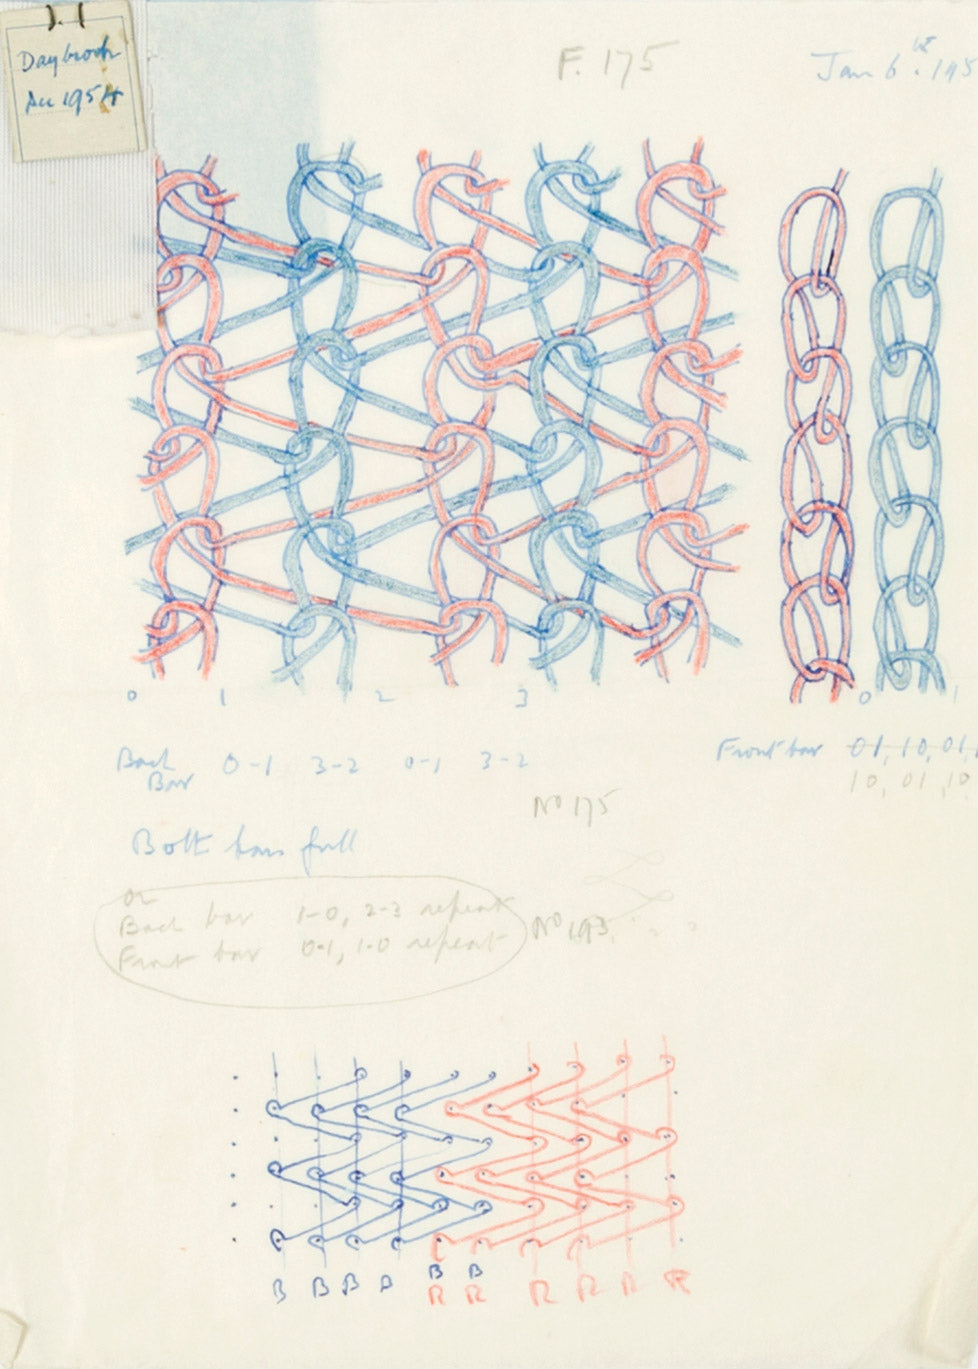 Daybrook
Dec 1954
F. 175
Jan 6th. 195
0 1 2 3
0 1
Back Bar 0-1 3-2 0-1 3-2
Front bar 01, 10, 01,
10, 01, 10
No 175
Both bars full
or
Back bar 1-0, 2-3 repeat
Front bar 0-1, 1-0 repeat
No 193
B B B B B B
R R R R R R